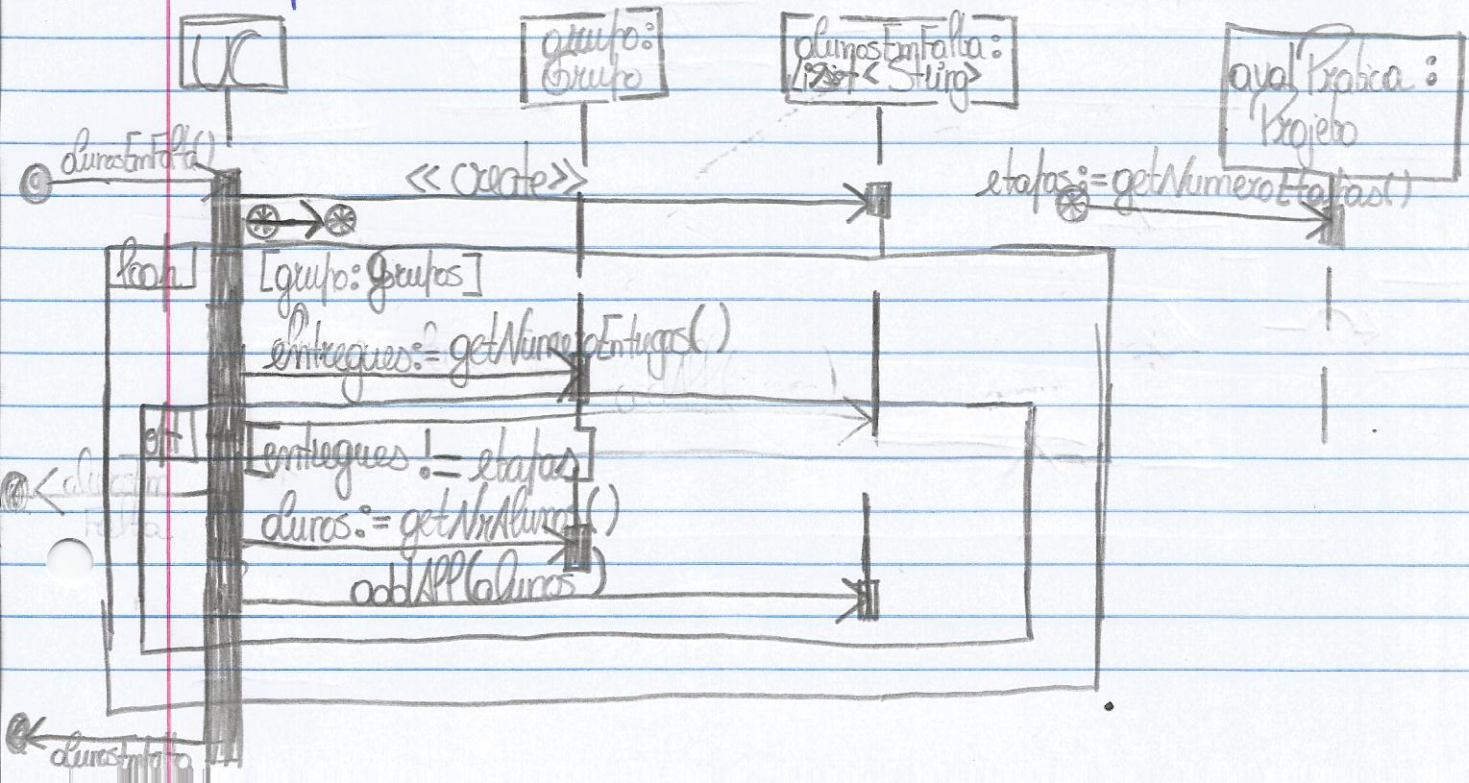 UC
grupo:
Grupo
alunosEmFalta:
List<String>
avalPratica:
Projeto
alunosEmFalta()
<<create>>
etapas:=getNumeroEtapas()
loop
[grupo:grupos]
entregues:=getNumeroEntregas()
opt
[entregues != etapas]
alunos:=getNrAlunos()
addAll(alunos)
alunosEmFalta